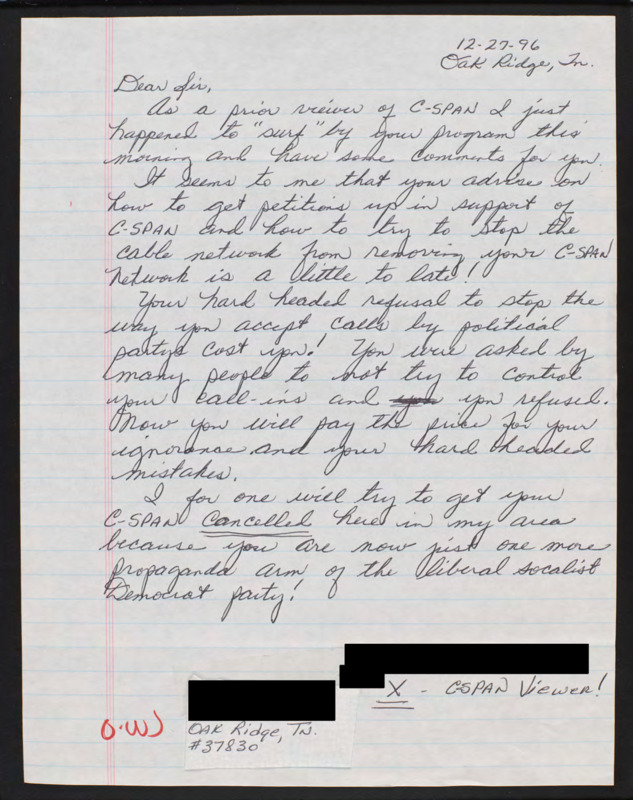 12-27-96
Oak Ridge, Tn.
Dear Sir,
As a prior viewer of C-SPAN I just
happened to "surf" by your program this
morning and have some comments for you.
It seems to me that your advise on
how to get petitions up in support of
C-SPAN and how to try to stop the
cable network from removing your C-SPAN
Network is a little to late!
Your hard headed refusal to stop the
way you accept calls by political
partys cost you! You were asked by
many people to not try to control
your call-ins and you you refused.
Now you will pay the price for your
ignorance and your hard headed
mistakes.
I for one will try to get your
C-SPAN Cancelled here in my area
because you are now just one more
propaganda arm of the liberal socalist
Democrat party!
X - CSPAN Viewer!
O.W
OAK Ridge, TN.
#37830